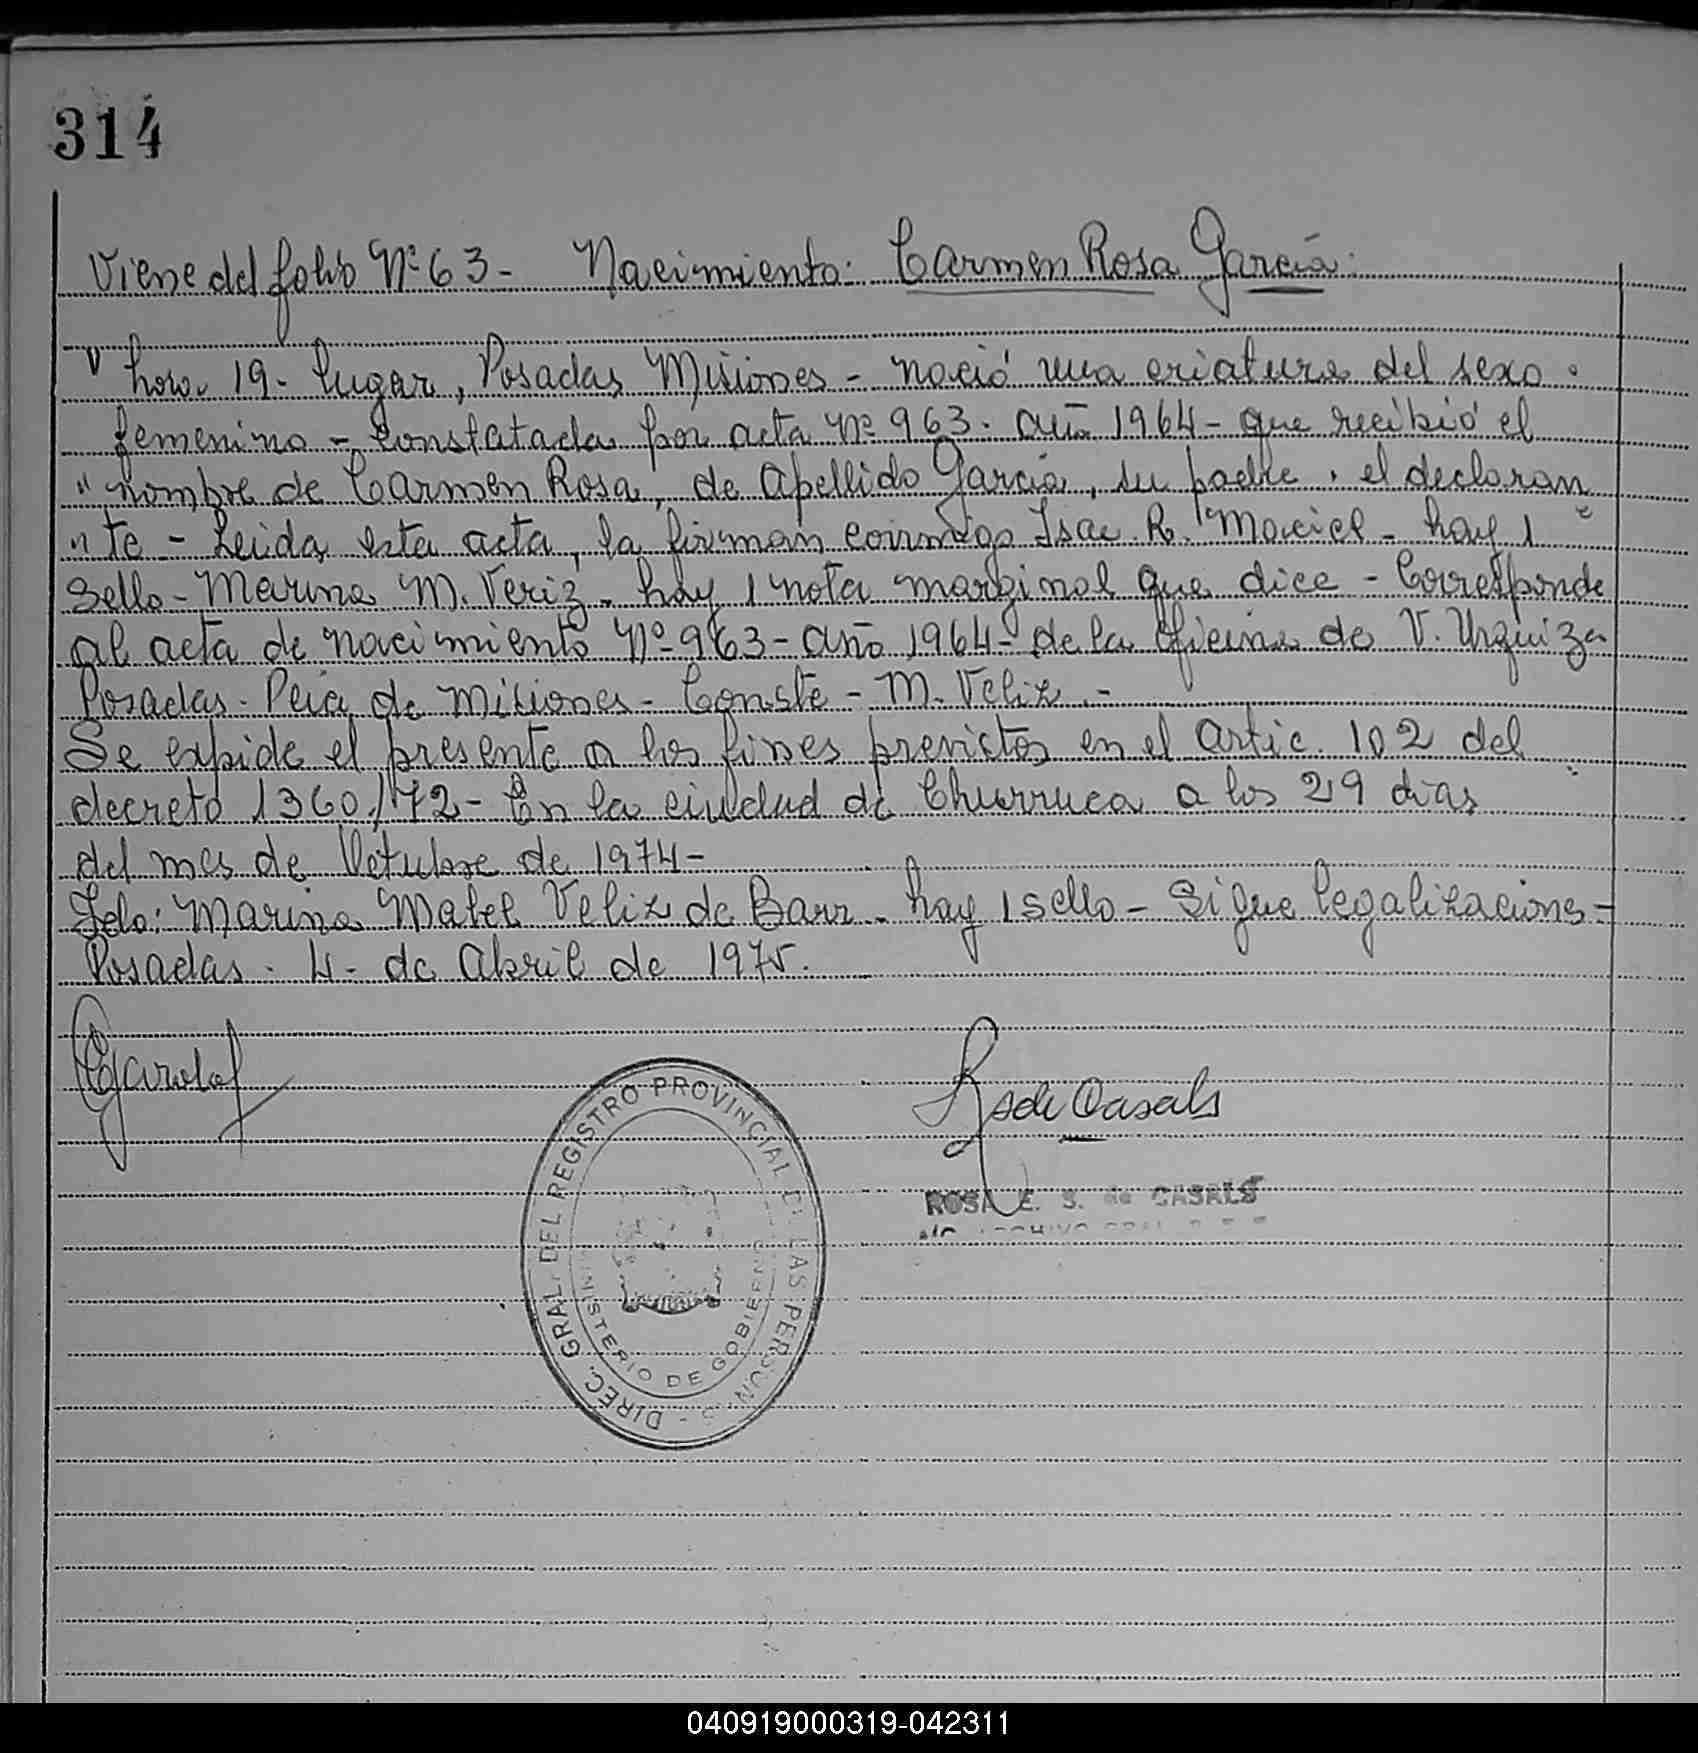 314
Viene del folio Nº 63 - Nacimiento: Carmen Rosa García.
" hora 19 - lugar, Posadas Misiones - nació una criatura del sexo
femenino - constatada por acta Nº 963. año 1964 - que recibió el
" nombre de Carmen Rosa, de apellido García, su padre, el declaran
" te - Leida esta acta, la firman Isac R. Maciel - hay 1
sello - Marina M. Veriz - hay 1 nota marginal que dice - Corresponde
al acta de nacimiento Nº 963 - año 1964 - de la oficina de V. Urquiza
Posadas - Pcia de Misiones - Conste - M. Veliz -
Se expide el presente a los fines previstos en el artic. 102 del
decreto 1360/72 - En la ciudad de Churruca a los 29 dias
del mes de Octubre de 1974 -
Fdo: Marina Mabel Veliz de Barr - hay 1 sello - Sigue legalizaciones -
Posadas - 4 - de Abril de 1975.
R de Casals
DIREC. GRAL. DEL REGISTRO PROVINCIAL DE LAS PERSONAS
MINISTERIO DE GOBIERNO
ROSA E. S. de CASALS
040919000319-042311